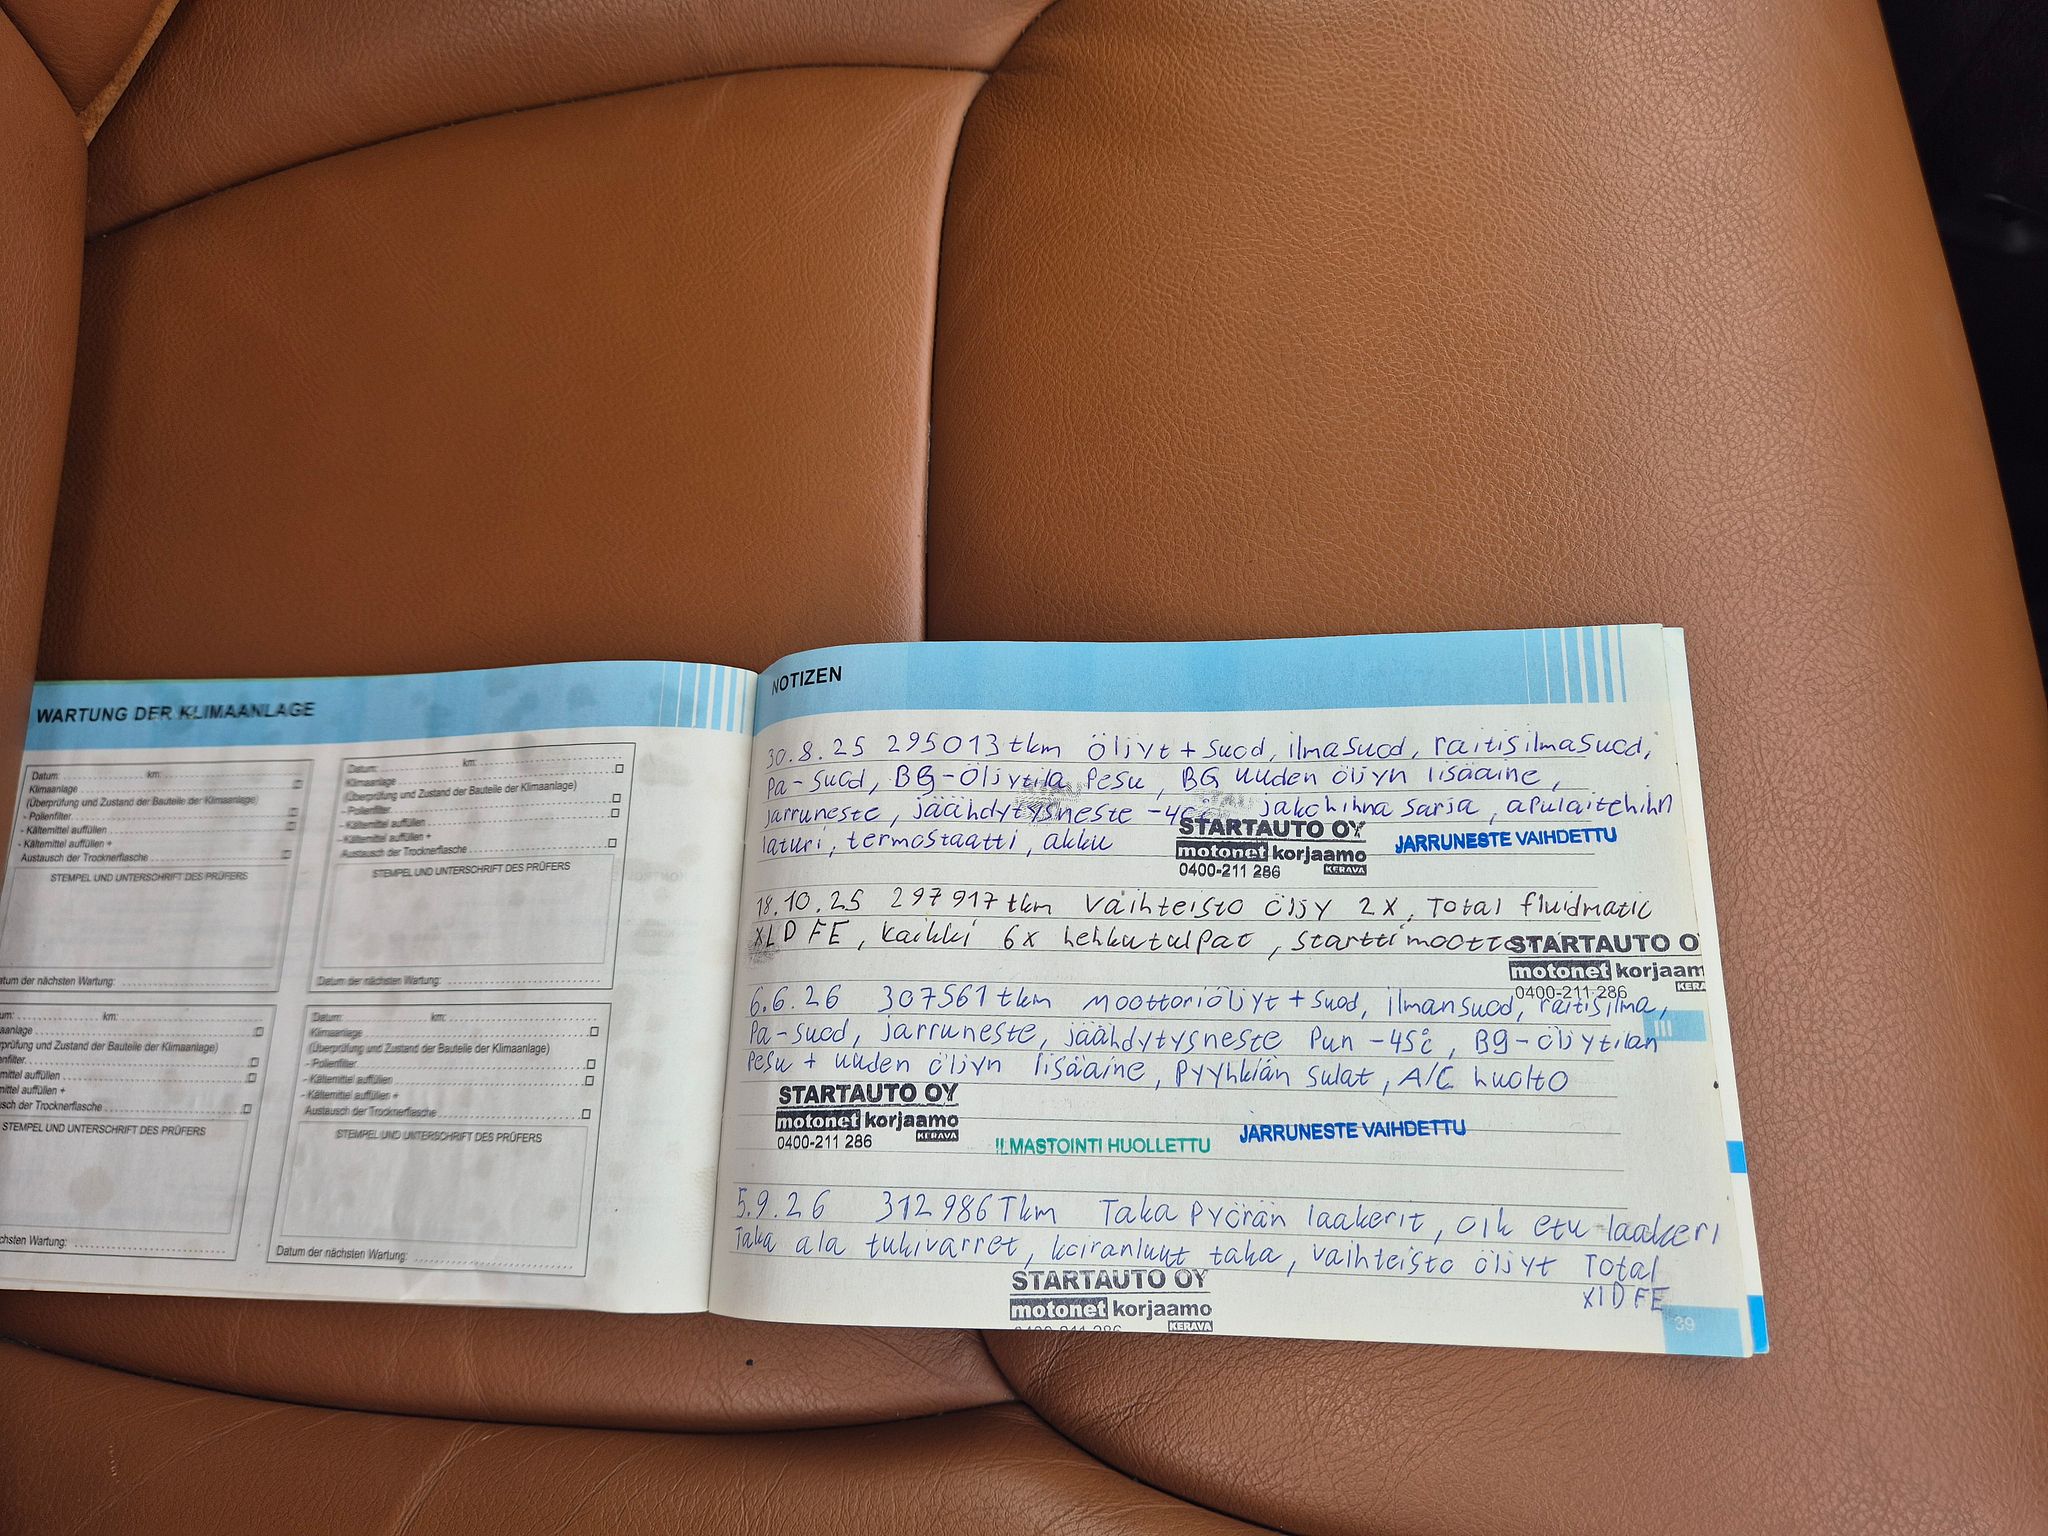 WARTUNG DER KLIMAANLAGE
Datum: km:
Klimaanlage
(Überprüfung und Zustand der Bauteile der Klimaanlage)
- Pollenfilter
- Kältemittel auffüllen
- Kältemittel auffüllen +
Austausch der Trocknerflasche
STEMPEL UND UNTERSCHRIFT DES PRÜFERS
atum der nächsten Wartung:
Datum: km:
Klimaanlage
(Überprüfung und Zustand der Bauteile der Klimaanlage)
- Pollenfilter
- Kältemittel auffüllen
- Kältemittel auffüllen +
Austausch der Trocknerflasche
STEMPEL UND UNTERSCHRIFT DES PRÜFERS
Datum der nächsten Wartung:
um: km:
aanlage
rprüfung und Zustand der Bauteile der Klimaanlage)
enfilter
emittel auffüllen
emittel auffüllen +
sch der Trocknerflasche
STEMPEL UND UNTERSCHRIFT DES PRÜFERS
chsten Wartung:
Datum: km:
Klimaanlage
(Überprüfung und Zustand der Bauteile der Klimaanlage)
- Pollenfilter
- Kältemittel auffüllen
- Kältemittel auffüllen +
Austausch der Trocknerflasche
STEMPEL UND UNTERSCHRIFT DES PRÜFERS
Datum der nächsten Wartung:
NOTIZEN
30.8.25 295013 tkm Öljyt + suod, ilmasuod, raitisilmasuod,
Pa-suod, BG-Öljytila Pesu, BG uuden öljyn lisäaine,
jarruneste, jäähdytysneste jakohihna sarja, apulaitehihn
laturi, termostaatti, akku
STARTAUTO OY
motonet korjaamo
0400-211 286 KERAVA
JARRUNESTE VAIHDETTU
18.10.25 297917 tkm Vaihteisto öljy 2x, Total fluidmatic
XLD FE, kaikki 6x hehkutulpat, starttimootto
STARTAUTO O
motonet korjaam
0400-211 286 KERA
6.6.26 307561 tkm moottoriöljyt + suod, ilmansuod, raitisilma,
Pa-suod, jarruneste, jäähdytysneste Pun -45c, BG-öljytilan
Pesu + uuden öljyn lisäaine, Pyyhkiän sulat, A/C huolto
STARTAUTO OY
motonet korjaamo
0400-211 286 KERAVA
ILMASTOINTI HUOLLETTU
JARRUNESTE VAIHDETTU
5.9.26 312986 Tkm Taka Pyörän laakerit, oik etu laakeri
Taka ala tukivarret, koiranluut taka, vaihteisto öljyt Total
XLD FE
STARTAUTO OY
motonet korjaamo
0400-211 286 KERAVA
39